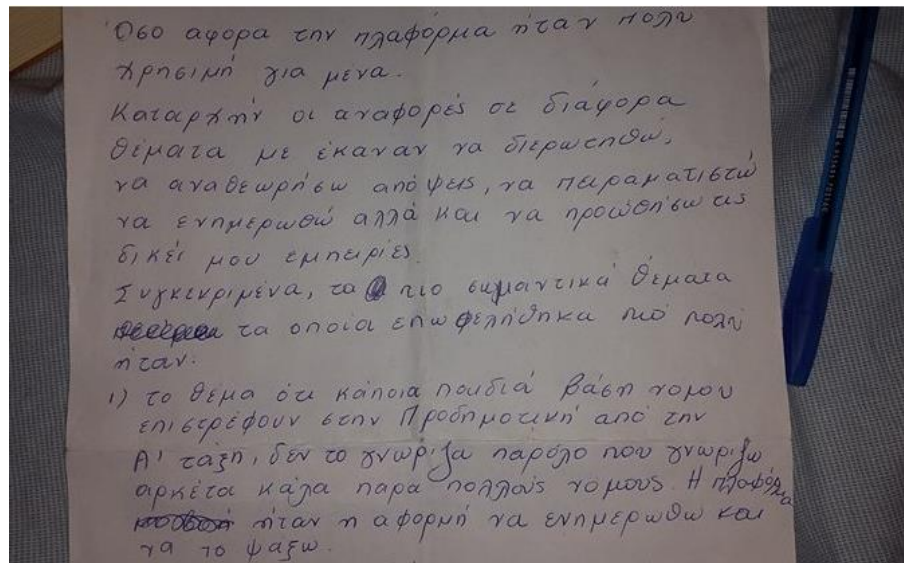 Όσο αφορα την πλαφόρμα ήταν πολύ
χρησιμή για μένα.
Καταρχήν οι αναφορές σε διάφορα
θέματα με έκαναν να διερωτηθώ,
να αναθεωρήσω απόψεις, να πειραματιστώ
να ενημερωθώ αλλά και να προώθησω τις
δικές μου εμπειρίες.
Συγκεκριμένα, τα πιο σημαντικά θέματα
τα οποία επωφελήθηκα πιό πολύ
ήταν:
1) το θέμα ότι κάποια παιδιά βάση νομου
επιστρέφουν στην Προδημοτική από την
Α' τάξη, δεν το γνώριζα παρόλο που γνωρίζω
αρκέτα κάλα παρα πολλούς νομους. Η πλαφόρμα
ήταν η αφορμή να ενημερωθω και
να το ψαξω.